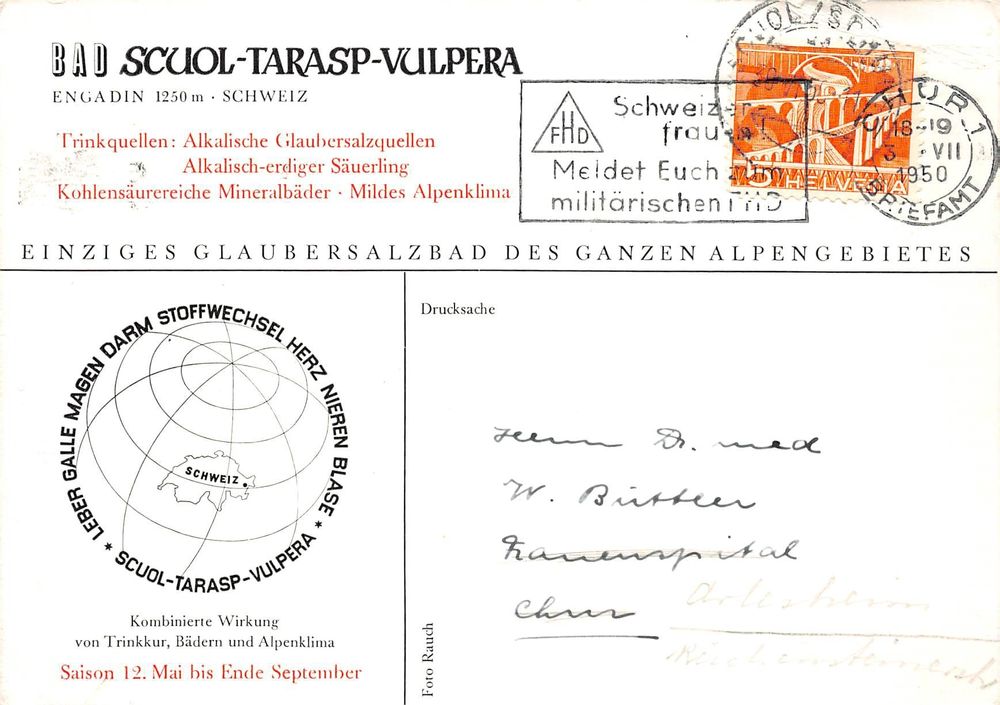 BAD SCUOL-TARASP-VULPERA
ENGADIN 1250 m · SCHWEIZ
Trinkquellen: Alkalische Glaubersalzquellen
Alkalisch-erdiger Säuerling
Kohlensäurereiche Mineralbäder · Mildes Alpenklima
FHD
Schweizer
frau
Meldet Euch zum
militärischen FHD
5 HELVETIA
CHUR 1
18-19
VII
1950
BRIEFAMT
EINZIGES GLAUBERSALZBAD DES GANZEN ALPENGEBIETES
LEBER GALLE MAGEN DARM STOFFWECHSEL HERZ NIEREN BLASE
SCHWEIZ
* SCUOL-TARASP-VULPERA *
Kombinierte Wirkung
von Trinkkur, Bädern und Alpenklima
Saison 12. Mai bis Ende September
Drucksache
Foto Rauch
Herrn Dr. med
W. Büttler
Frauenspital
Chur
Arlesheim